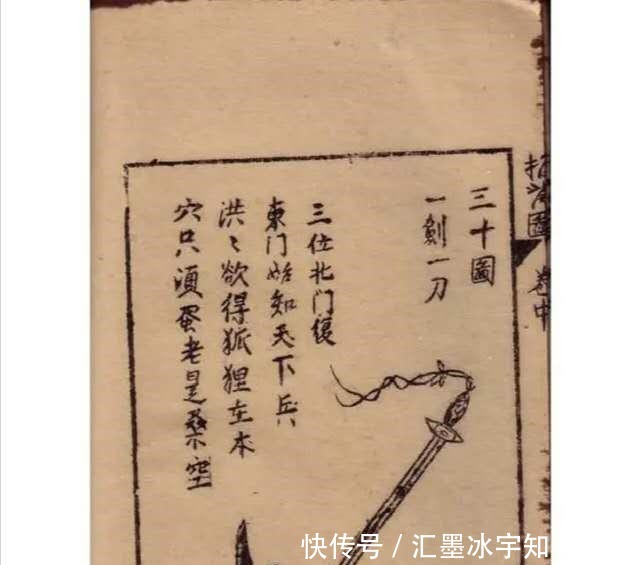 圖 卷中
三十圖
一劍一刀
三位北门復
東门始知天下兵
洪〻欲得狐狸在本
穴只須蛋老是桑空
快传号 / 汇墨冰宇知